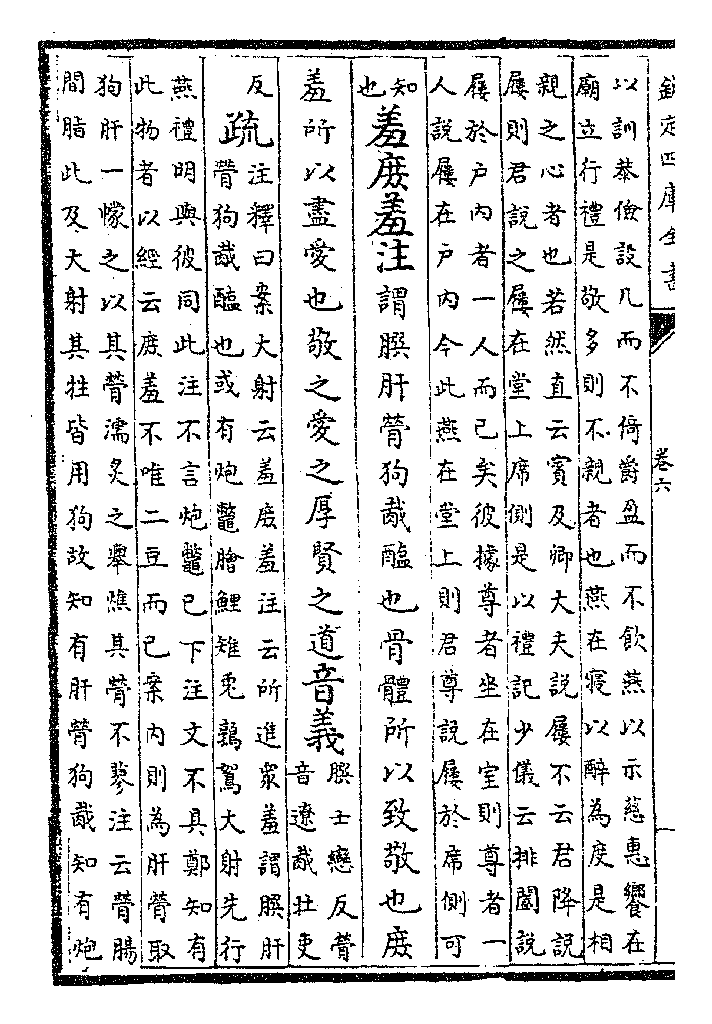 欽定四庫全書
卷六
以訓恭儉設几而不倚爵盈而不飲燕以示慈惠饗在
廟立行禮是敬多則不親者也燕在寢以醉為度是相
親之心者也若然直云賓及卿大夫説屨不云君降説
屨則君説之屨在堂上席側是以禮記少儀云排闔説
屨於户内者一人而已矣彼據尊者坐在室則尊者一
人説屨在户内今此燕在堂上則君尊説屨於席側可
知
也
羞庶羞注謂䐑肝膋狗胾醢也骨體所以致敬也庶
羞所以盡愛也敬之愛之厚賢之道音義䐑士戀反膋
音遼胾壯吏
反
疏注釋曰案大射云羞庶羞注云所進衆羞謂䐑肝
膋狗胾醢也或有炮鼈膾鯉雉兎鶉鴽大射先行
燕禮明與彼同此注不言炮鼈已下注文不具鄭知有
此物者以經云庶羞不唯二豆而已案内則為肝膋取
狗肝一幪之以其膋濡炙之舉燋其膋不蓼注云膋腸
間脂此及大射其牲皆用狗故知有肝膋狗胾知有炮